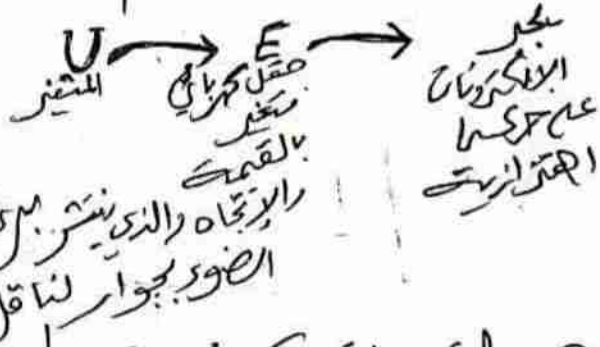 U → E →
المتغير
حقل كهربائي
متغير
بالقيمة
والإتجاه والذي ينتشر بسرعة
الضوء بجوار الناقل
يجبر
الالكترونات
على حركة
اهتزازية